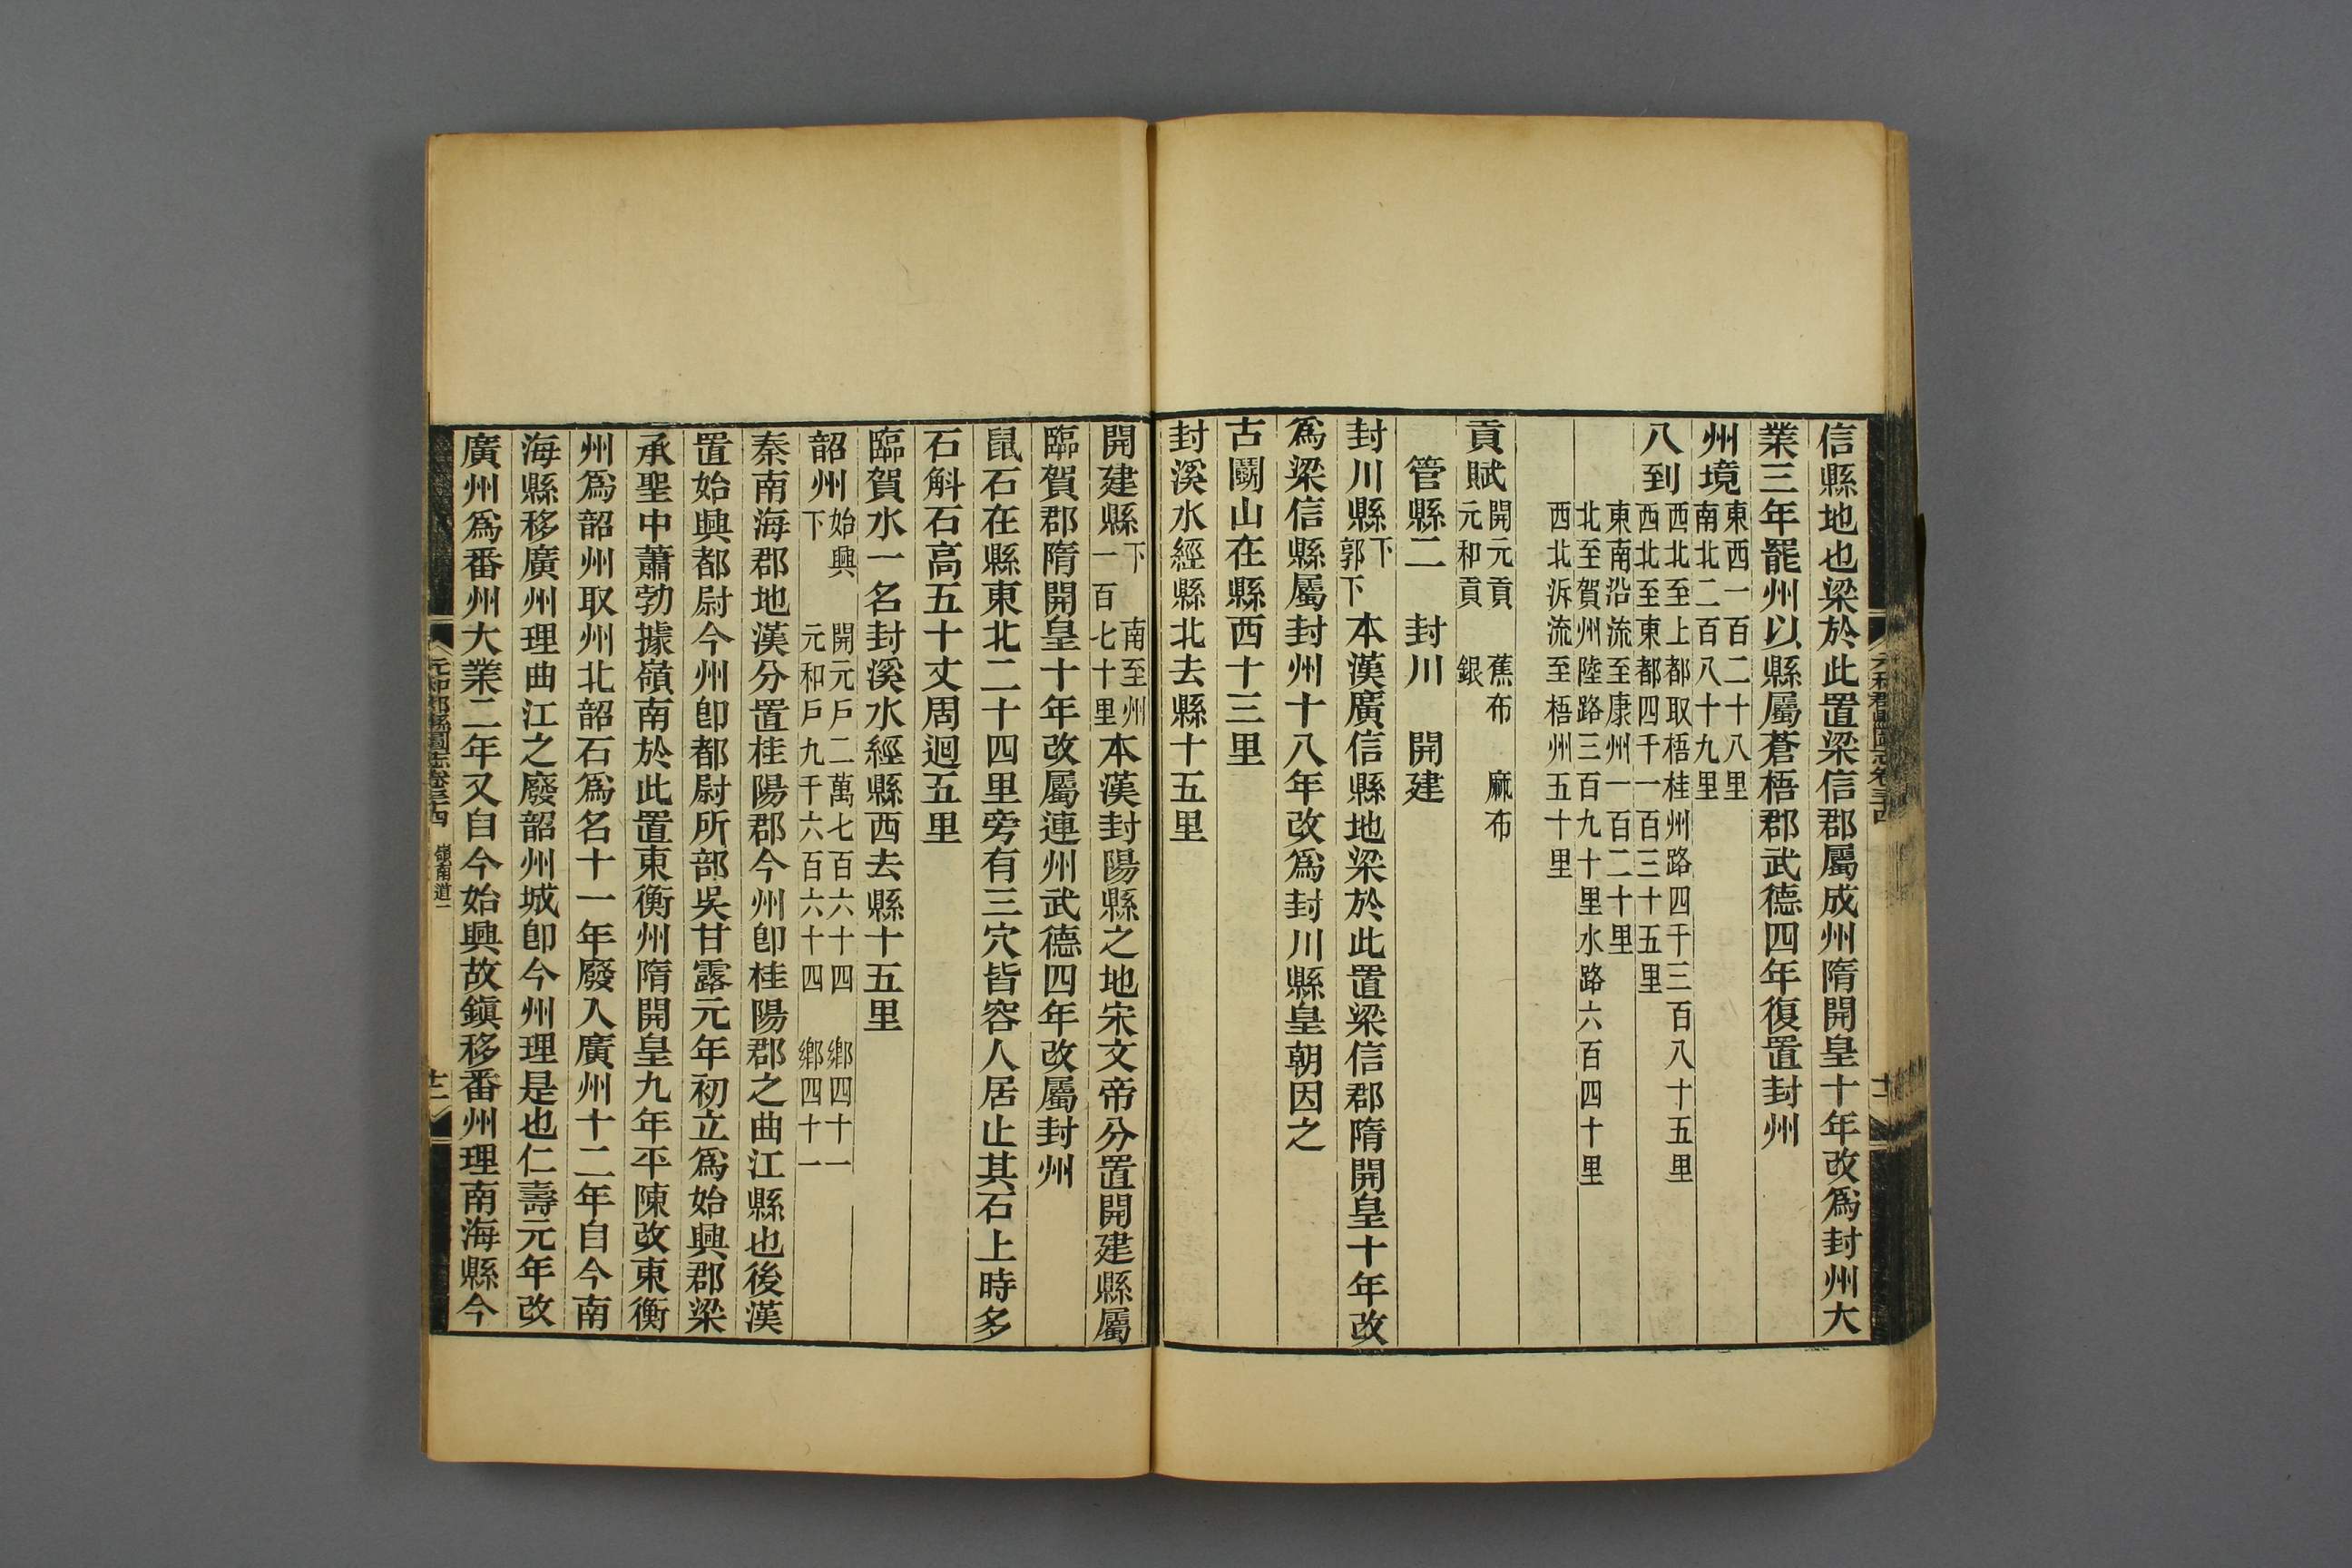 信縣地也梁於此置梁信郡屬成州隋開皇十年改爲封州大
業三年罷州以縣屬蒼梧郡武德四年復置封州
州境東西一百二十八里
南北二百八十九里
八到西北至上都取梧桂州路四千三百八十五里
西北至東都四千一百三十五里
東南沿流至康州一百二十里
北至賀州陸路三百九十里水路六百四十里
西北泝流至梧州五十里
貢賦開元貢 蕉布 麻布
元和貢 銀
管縣二 封川 開建
封川縣下郭下 本漢廣信縣地梁於此置梁信郡隋開皇十年改
爲梁信縣屬封州十八年改爲封川縣皇朝因之
古鬭山在縣西十三里
封溪水經縣北去縣十五里
元和郡縣圖志卷三十四
十一
開建縣下 南至州一百七十里本漢封陽縣之地宋文帝分置開建縣屬
臨賀郡隋開皇十年改屬連州武德四年改屬封州
鼠石在縣東北二十四里旁有三穴皆容人居止其石上時多
石斛石高五十丈周迴五里
臨賀水一名封溪水經縣西去縣十五里
韶州始興下 開元戶二萬七百六十四 鄉四十一
元和戶九千六百六十四 鄉四十一
秦南海郡地漢分置桂陽郡今州卽桂陽郡之曲江縣也後漢
置始興都尉今州卽都尉所部吳甘露元年初立爲始興郡梁
承聖中蕭勃據嶺南於此置東衡州隋開皇九年平陳改東衡
州爲韶州取州北韶石爲名十一年廢入廣州十二年自今南
海縣移廣州理曲江之廢韶州城卽今州理是也仁壽元年改
廣州爲番州大業二年又自今始興故鎮移番州理南海縣今
元和郡縣圖志卷三十四 嶺南道一
十二